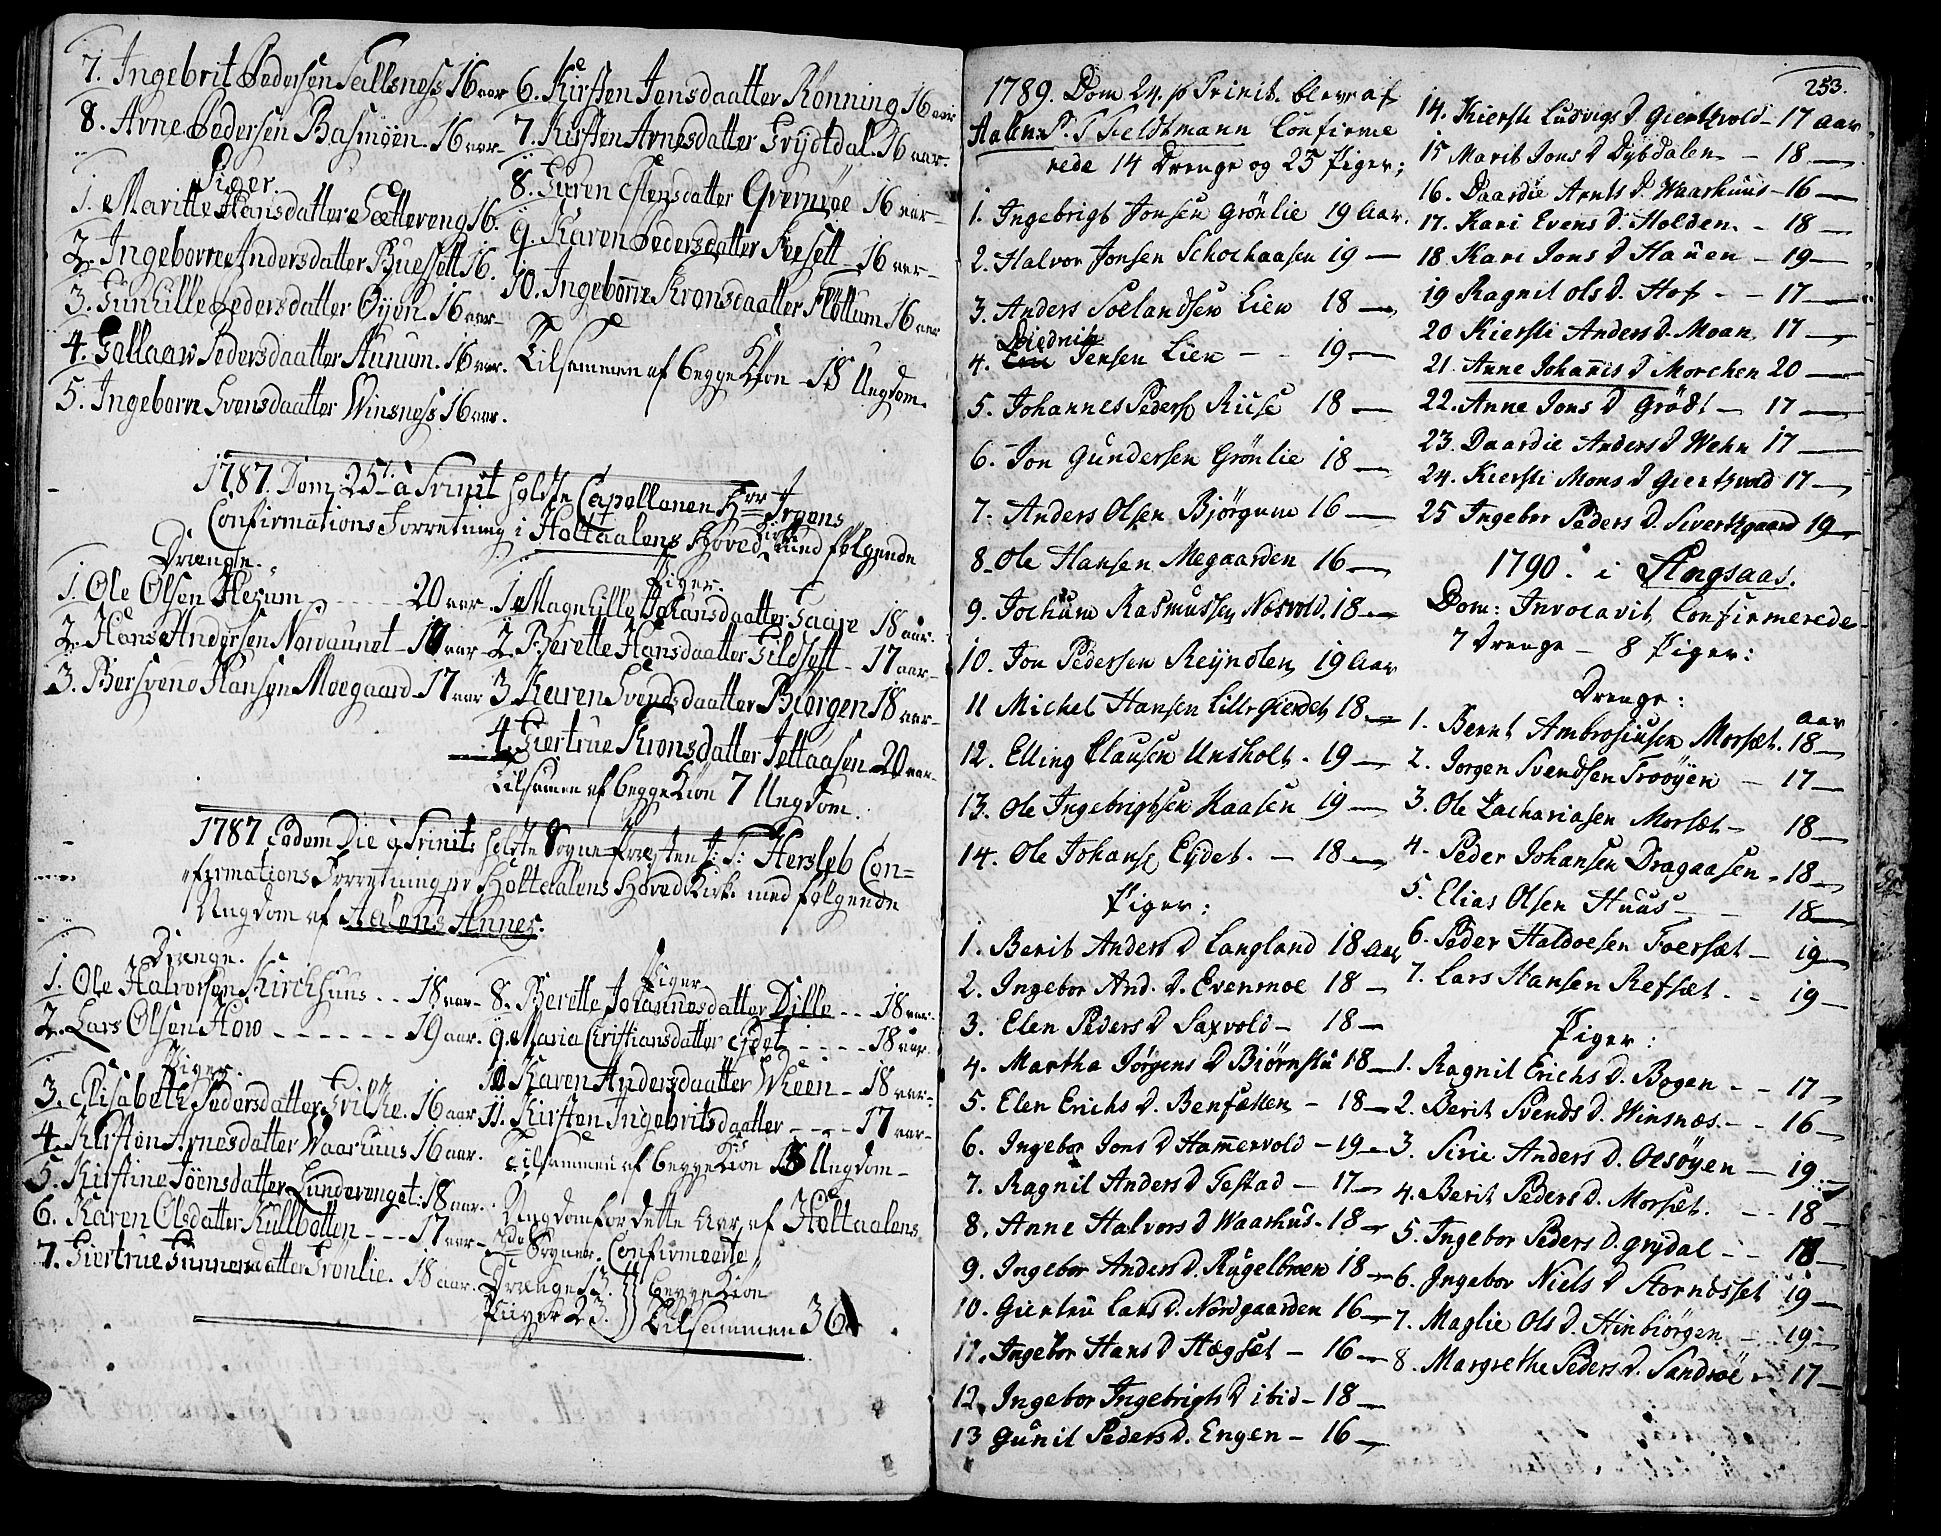 7. Ingebrit Pedersen Fallsness 16 aar
8. Arne Pedersen Basmoen. 16 aar
Piger.
1. Maritte Hansdatter Sættereng 16.
2. Ingeborre Andersdatter Buessett 16.
3. Gunhille Pedersdatter Øyen 16 aar
4. Gollaaw Pedersdaatter Aunum. 16 aar.
5. Ingeborn Svensdaatter Winsness 16 aar.
6. Kirsten Jensdaatter Rönning 16 aar
7. Kirsten Arnesdaatter Grydtdal. 16 aar.
8. Guren Stensdatter Qvernröe 16 aar
9. Karen Pedersdaatter Reesett 16 aar
10. Ingeborre Kronsdaatter Flöttum 16 aar
Tilsammen af begge Kion 18 Ungdom.
1787. Dom 25 à Trinit holdte Capellanen Hrr Irgens
Confirmations Forretning i Holtaalens Hoved Kirke med følgende
Drænge.
1. Ole Olsen Hesum 20 aar
2. Hans Andersen Noraunet 17 aar
3. Bersveno Hansen Moegaard 17 aar
Piger.
1. Magnhille Johansdaatter Gaare 18 aar.
2. Berette Hansdaatter Gildsett 17 aar
3. Karen Svendsdaatter Biörgen 18 aar
4. Giertrue Kronsdatter Jettaasen 20 aar
Tilsamen af begge Kion 7 Ungdom.
1787 Eodem Die a Trinit: holdte Sogne Præsten J: S: Hersleb Con=
firmations Forretning i Holtaalens Hoved Kirke med følgende
Ungdom af Aalens Annex:
Drænge.
1. Ole Halvorsen Kirchhuus 18 aar
2. Lars Olsen How 19 aar.
Piger.
3. Elisabeth Pedersdatter Grilhe. 16 aar
4. Kirsten Arnesdatter Waarhuus 16 aar.
5. Kirstine Jöensdatter Lunderenget: 18 aar.
6. Karen Olsdatter Kullbotten 17 aar
7. Giertrue Gunnersdatter Grönlie. 18 aar.
Piger
8. Berette Johannesdatter Dille 18 aar.
9. Maria Christiansdatter Eydet 18 aar.
10 Karen Andersdaatter Wheen 18 aar
11. Kirsten Ingebritsdaatter 17 aar
Tilsammen af begge Kion 18 Ungdom
Ungdom for dette Aar, af Holtaalens
Sogner, Confirmeerte
Drænge 13. } begge Kiön
Piiger 23. } Tilsammen 36
253.
1789. Dom 24. p Trinit. blev af
Aalen: P. T Feldtmann Confirme
rede 14 Drenge og 25 Piger;
1. Ingebrigt Jonsen Grönlie 19 Aar.
2. Halvor Jonsen Schochaasen 19
3. Anders Soelandsen Lien 18
Diedrik
4. Jensen Lien 19
5. Johannes Peders Riise 18
6. Jon Gundersen Grönlie 18
7. Anders Olsen Bjørgum 16
8. Ole Hansen Megaarden 16
9. Jochum Rasmussen Nosvold. 18
10. Jon Pedersen Reyndlen 19 Aar
11 Michel Hansen Lille Gierdet 18
12. Elling Clausen Unsholt. 19
13. Ole Ingebrigtsen Haasen 19
14. Ole Johans Eydet. 18
Piger:
1. Berit Anders D Langland 18 Aar
2. Ingebor And. D. Evenmoe 18
3. Elen Peders D Saxvold 18
4. Martha Jørgens D Biørnstu 18
5. Elen Erichs D. Bensletten 18
6. Ingebor Jons D Hammervold 19
7. Ragnil Anders D Testad 17
8. Anne Halvors D Waarhus. 18
9. Ingebor Anders D. Kugelbroen 18
10. Giertru Lars D. Nordgaarden 16
11. Ingebor Hans D Hægset 16
12. Ingebor Ingebrigts D ibid 18
13 Gunil Peders D. Engen 16
14. Kiersti Ludvigs D Giertzvold 17 aar
15 Marit Jons D Dybdalen 18
16. Daardie Arnts D. Waarhuus 16
17. Kari Evens D. Holden. 18
18. Kari Jons D Hauen 19
19 Ragnil Ols D. Hof 17
20 Kiersti Anders D. Moan 17
21. Anne Johannis D Morchen 20
22. Anne Jons D Gröt 17
23. Daardie Anders D Wehn 17
24. Kiersti Mons D Giertzvold 17
25 Ingebor Peders D. Sivertsgaard 19
1790. i Singsaas.
Dom: Invocavit Confirmerede
7 Drenge 8 Piger:
Drenge:
Aar
1. Bernt Ambrosiusen Morset. 18
2. Jorgen Svendsen Troöyen 17
3. Ole Zachariasen Morsæt 18
4. Peder Johansen Dragaasen 18
5. Elias Olsen Huus 18
6. Peder Haldoesen Foersæt 19
7. Lars Hansen Refsæt. 19
Piger:
1. Ragnil Erichs D. Bogen 17
2. Berit Svends D. Winsnæs. 16
3. Sirie Anders D. Oesöyen 19
4. Berit Peders D. Morset. 18
5. Ingebor Peders D. Grydal 18
6. Ingebor Niels D Stornesset 19
7. Maglie Ols D. Hinbiörgen 19
8. Margrethe Peders D. Sandroe 17